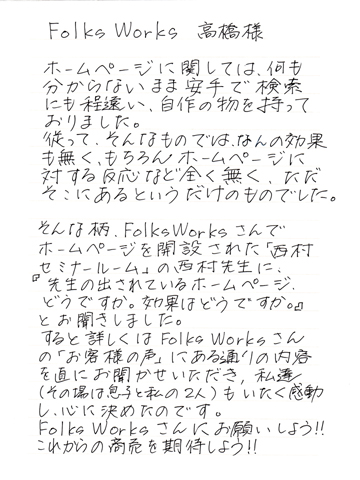 Folks Works 高橋様
ホームページに関しては、何も
分からないまま安手で検索
にも程遠い、自作の物を持って
おりました。
従って、そんなものでは、なんの効果
も無く、もちろんホームページに
対する反応など全く無く、ただ
そこにあるというだけのものでした。
そんな柄、FolksWorksさんで
ホームページを開設された「西村
セミナールーム」の西村先生に、
『先生の出されているホームページ、
どうですか。効果はどうですか。』
とお聞きしました。
すると詳しくはFolks Worksさん
の「お客様の声」にある通りの内容
を直にお聞かせいただき、私達
(その場は息子と私の2人)もいたく感動
し、心に決めたのです。
Folks Worksさんにお願いしよう!!
これからの商売を期待しよう!!